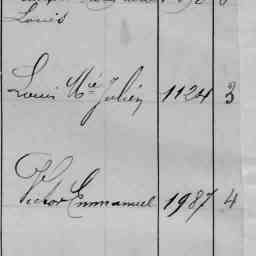 Louis
Louis Mie Julien 1124 3
Victor Emmanuel 1987 4